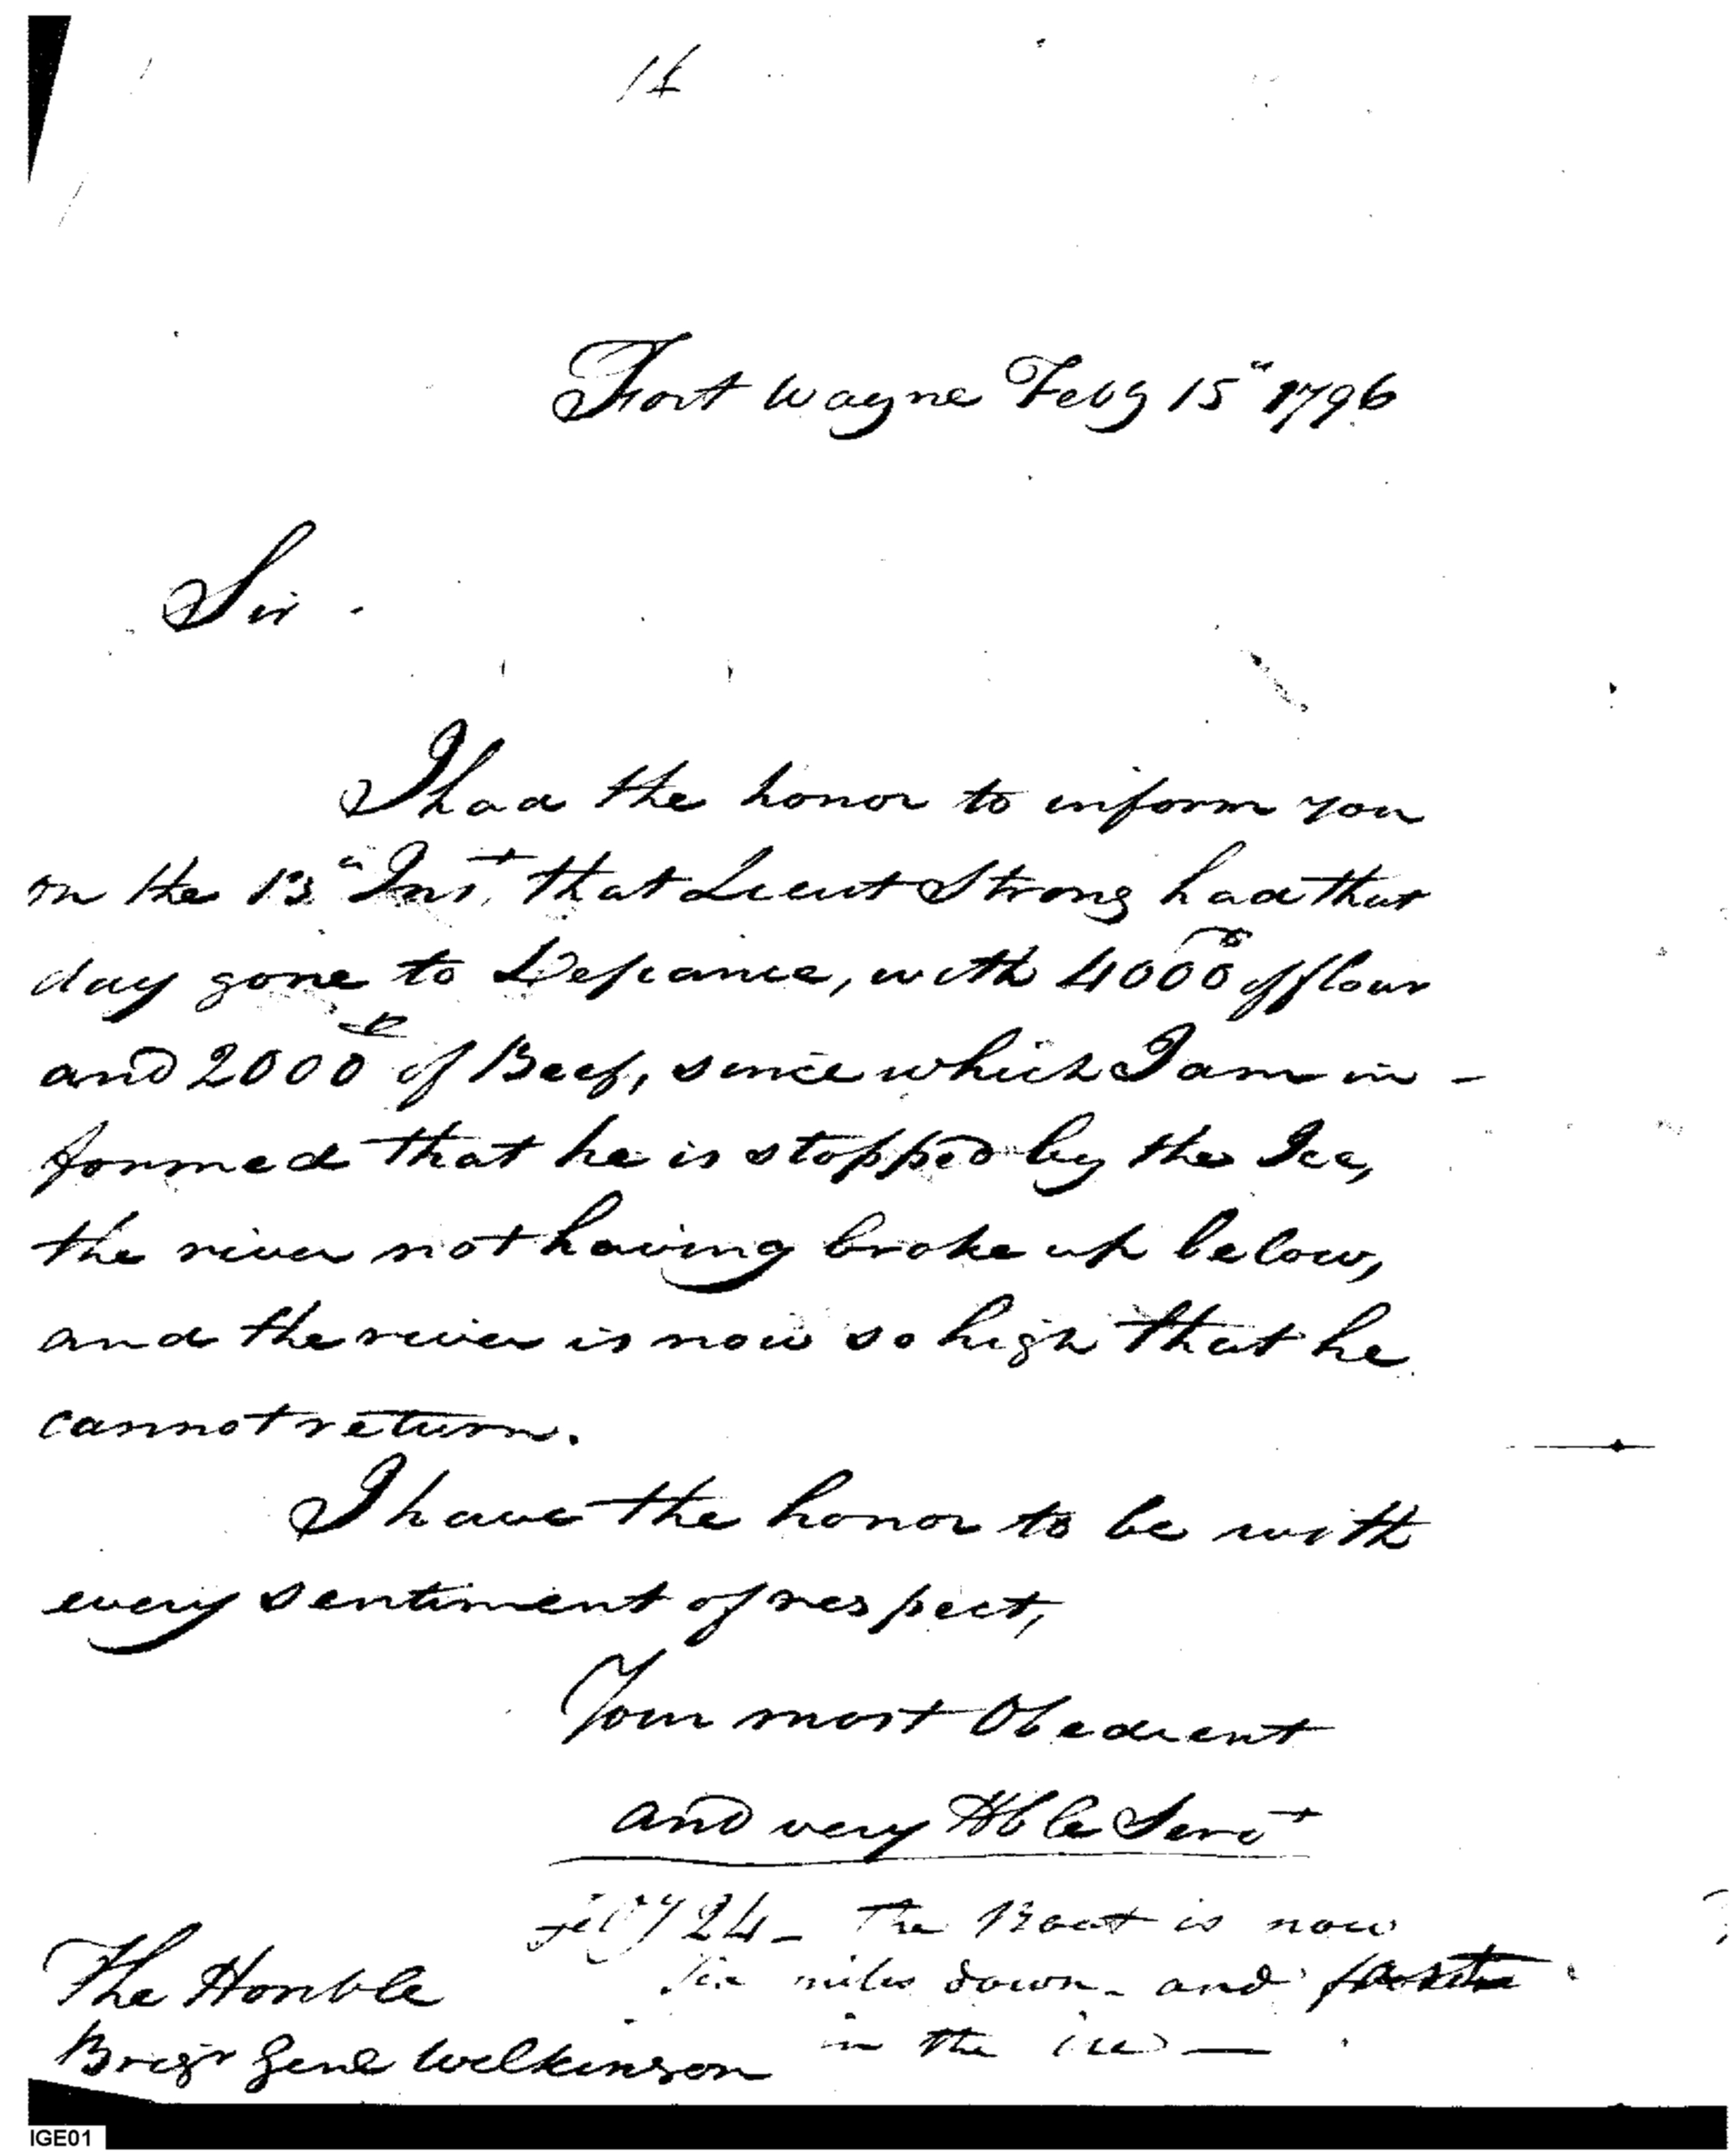 Fort Wayne Feby 15" 1796
Sir -
I had the honor to inform you
on the 13" Inst, that Lieut Strong had that
day gone to Defiance, with 4000 lb of flour
and 2000 lb of Beef, since which I am in -
formed that he is stopped by the Ice,
the river not having broke up below,
and the river is now so high that he
cannot return.
I have the honor to be with
every sentiment of respect,
Your most Obedient
and very Hble Servt
feby 24 - The Boat is now
miles down - and
in the ice —
The Honble
Brigr Genl Wilkinson
IGE01